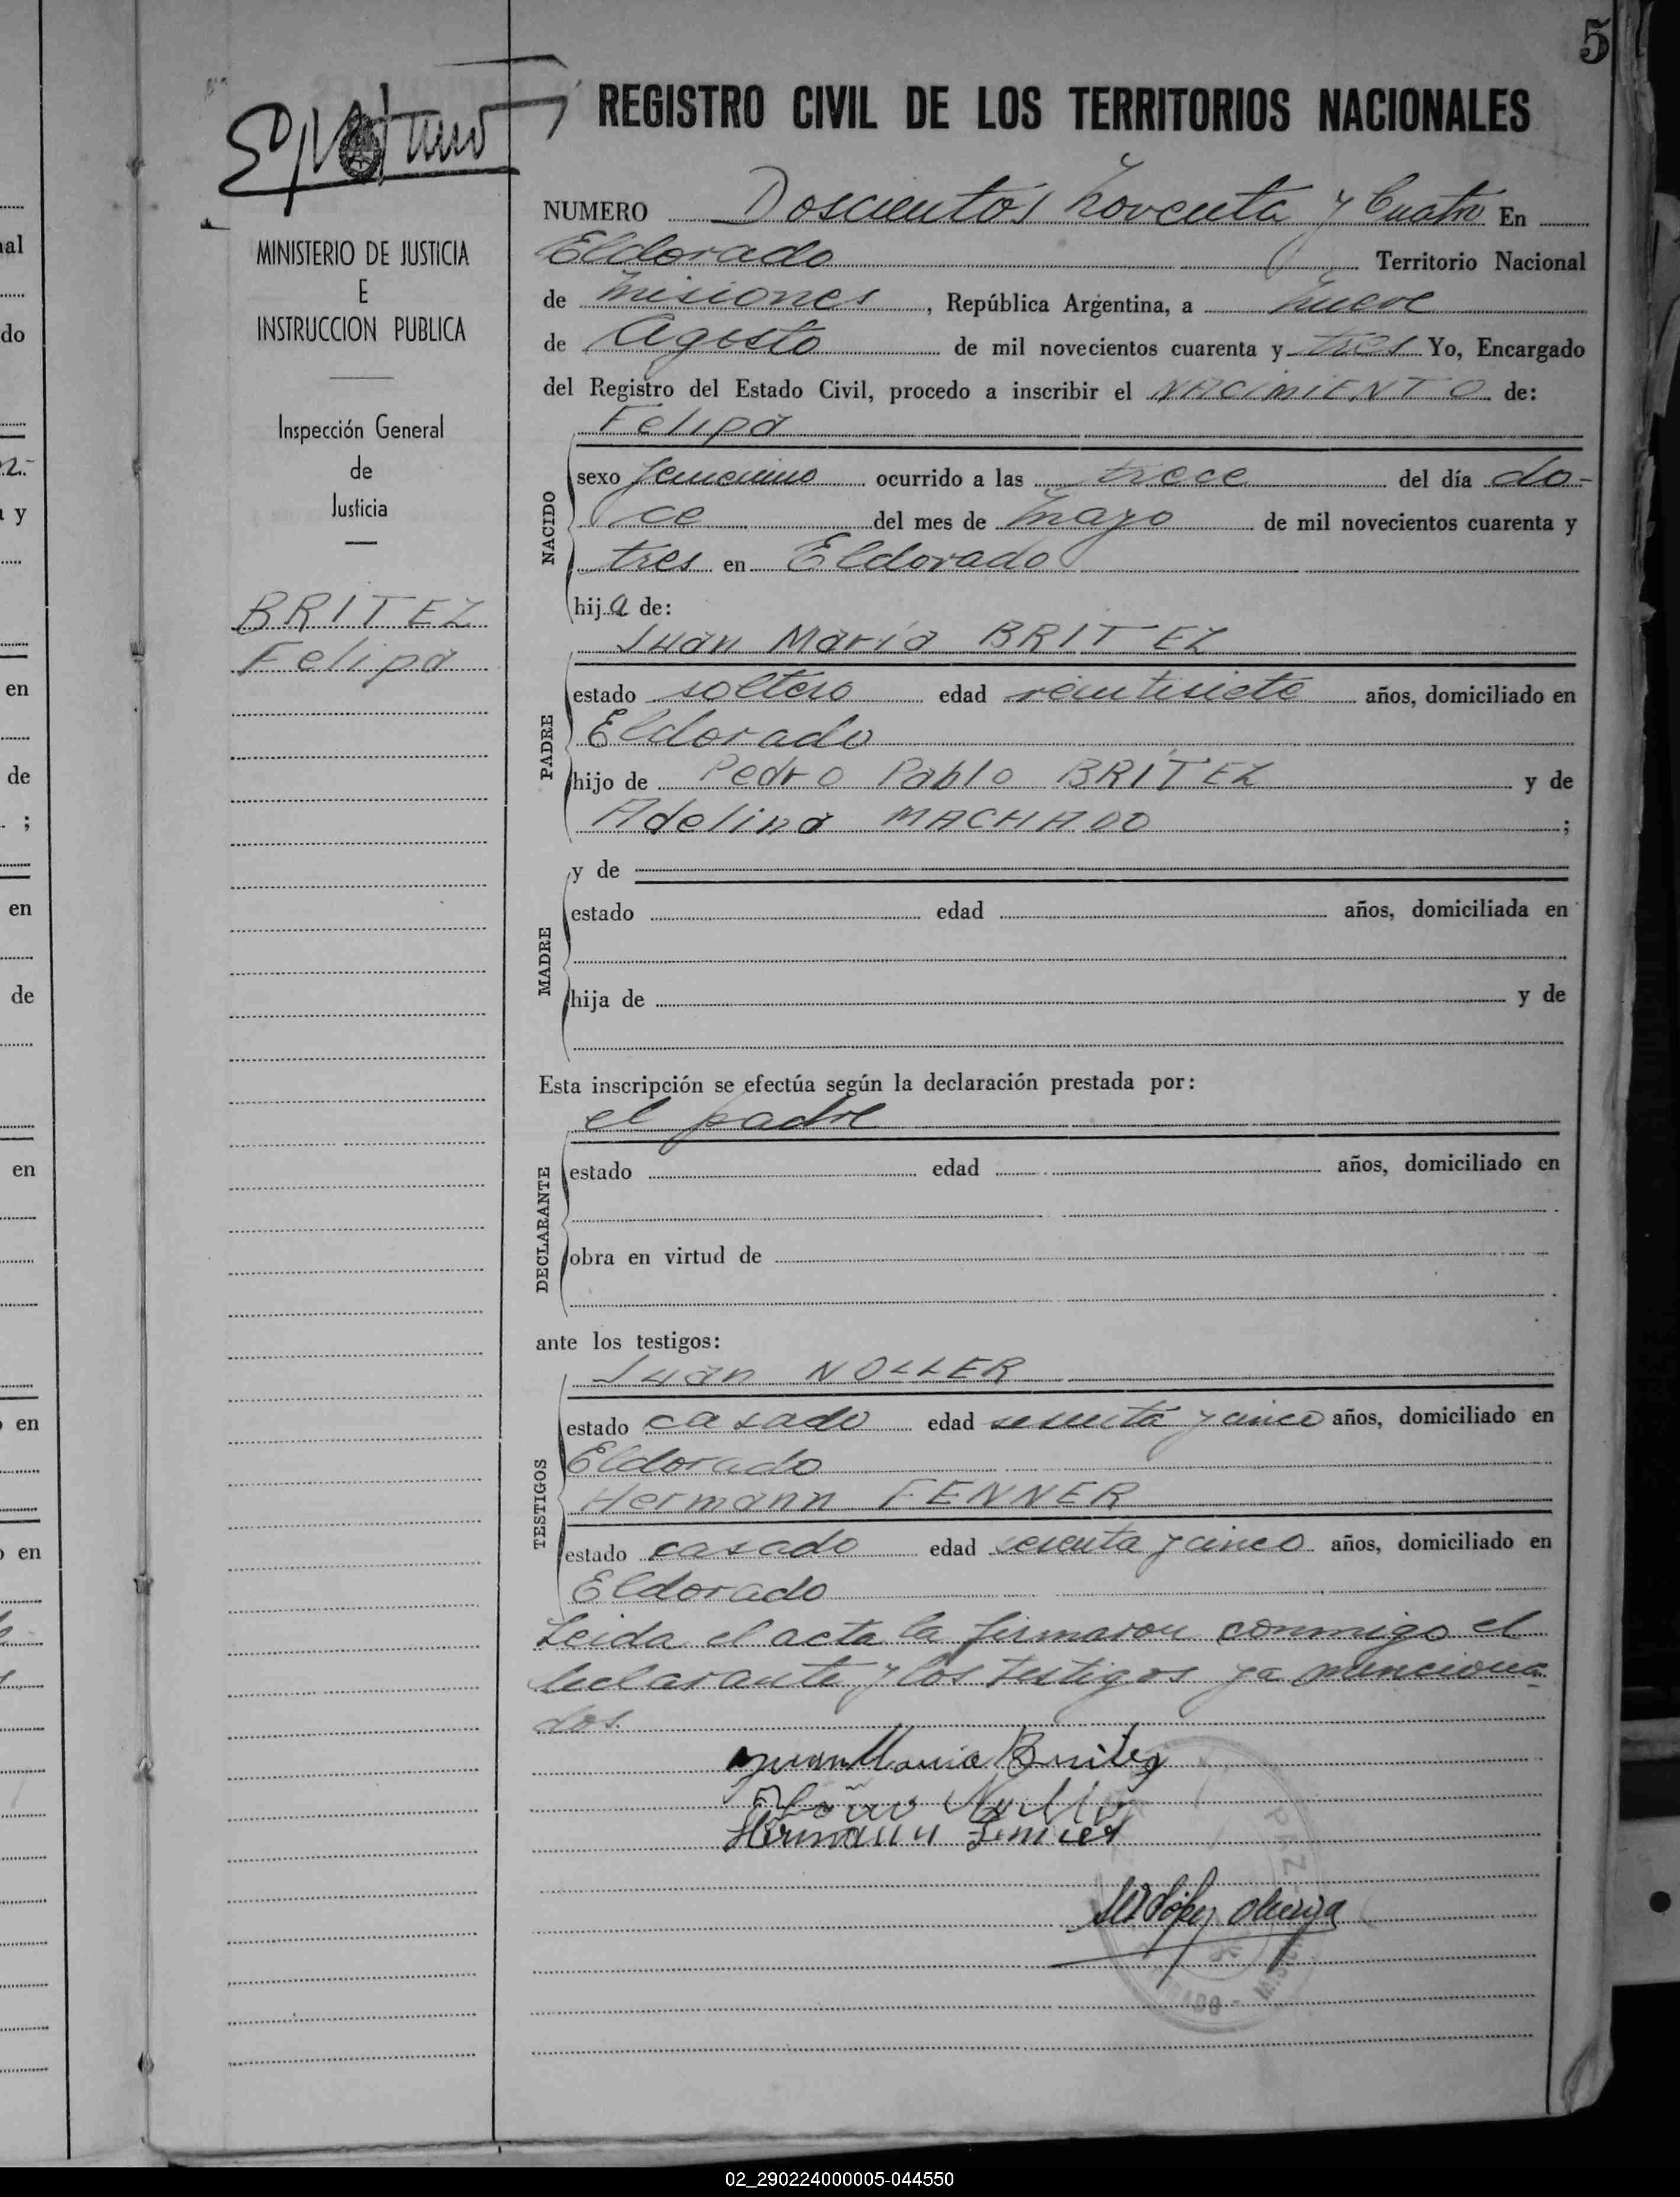 5
REGISTRO CIVIL DE LOS TERRITORIOS NACIONALES
MINISTERIO DE JUSTICIA
E
INSTRUCCION PUBLICA
Inspección General
de
Justicia
BRITEZ
Felipa
NUMERO Doscientos noventa y Cuatro En
Eldorado Territorio Nacional
de Misiones, República Argentina, a nueve
de Agosto de mil novecientos cuarenta y tres Yo, Encargado
del Registro del Estado Civil, procedo a inscribir el NACIMIENTO de:
Felipa
NACIDO
sexo femenino ocurrido a las trece del día do-
ce del mes de Mayo de mil novecientos cuarenta y
tres en Eldorado
hija de:
Juan María BRITEZ
PADRE
estado soltero edad veintisiete años, domiciliado en
Eldorado
hijo de Pedro Pablo BRITEZ y de
Adelina MACHADO ;
MADRE
y de
estado edad años, domiciliada en
hija de y de
Esta inscripción se efectúa según la declaración prestada por:
el padre
DECLARANTE
estado edad años, domiciliado en
obra en virtud de
ante los testigos:
Juan NOLLER
TESTIGOS
estado casado edad sesenta y cinco años, domiciliado en
Eldorado
Hermann FENNER
estado casado edad sesenta y cinco años, domiciliado en
Eldorado
Leida el acta la firmaron conmigo el
declarante y los testigos ya menciona-
dos.
Juan Maria Britez
Hermann Fenner
PAZ
al
do
2.-
y
en
de
;
en
de
en
en
en
02_290224000005-044550